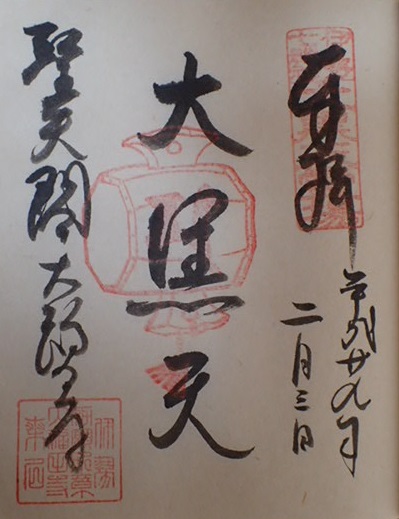 奉拝
平成廿九年
二月三日
大黒天
聖天閣 大福生寺